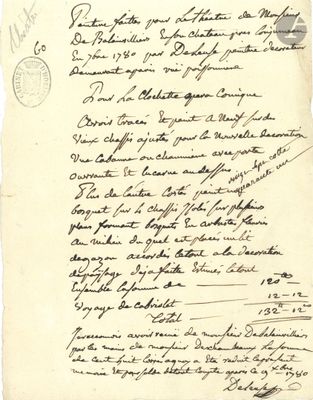 60
Peinture faitte pour Le théatre de Monsieur
De Balainvilliers En son chateau près
En 7bre 1780 par Deleuse peintre decorateur
Demeurant a paris rüe poissonniere
Pour La Clochette opera Comique
Avoir tracé Et peint a Neuf sur des
Vieux chassis ajustés pour la Nouvelle Decoration
Une Cabanne ou chaumiere avec porte
ouvrante Et lucarne au dessus
Plus de l'autre Costé peint un
bosquet sur 4 chassis isolés sur plusieurs
plans formant bosquets En arbustes fleuris
Au milieu du quel est placé un lit
de gazon accordés le tout a la Decoration
de paysage deja faitte Estimés le tout
Ensemble la somme de — 120 tt
Voyage de cabriolet — 12-12
Total — 132 tt 12
avoir recu de monsieur De balainvilliers
par les mains de monsieur la somme
de Cent huit livres a quoy a Eté reduit le present
memoire Et pour solde de tout Compte a paris ce 9 xbre 1780
Deleuse